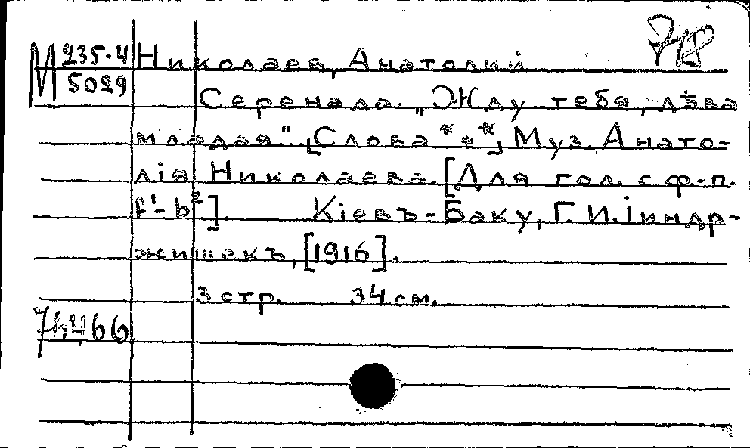 М 235.4
5029
Николаев, Анатолий
Серенада. "Жду тебя, дѣва
младая". [Слова * * *], Муз. Анато-
лія Николаева. [Для гол. с ф-п.
f¹-b²]. Кіевъ-Баку, Г. И. Іиндр-
жишекъ, [1916].
3 стр. 34 см.